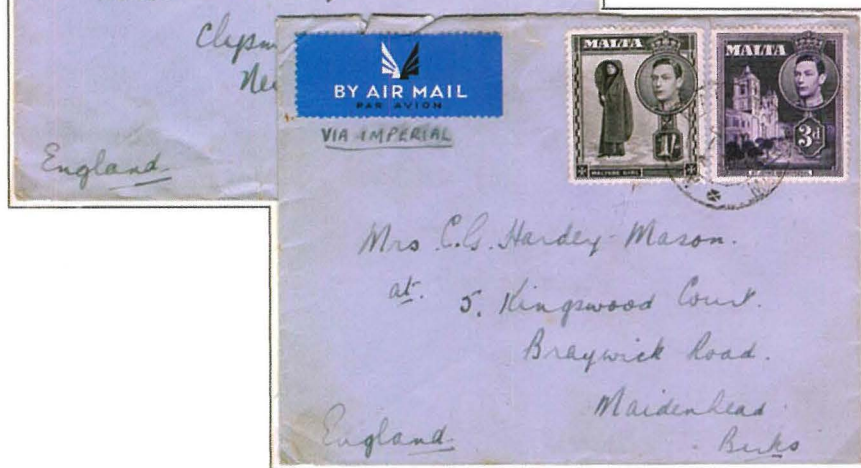 England
BY AIR MAIL
PAR AVION
VIA IMPERIAL
MALTA
MALTESE GIRL
1/-
MALTA
3d
Mrs. C.G. Hardey-Mason.
at. 5, Kingswood Court.
Braywick Road.
Maidenhead
Berks
England